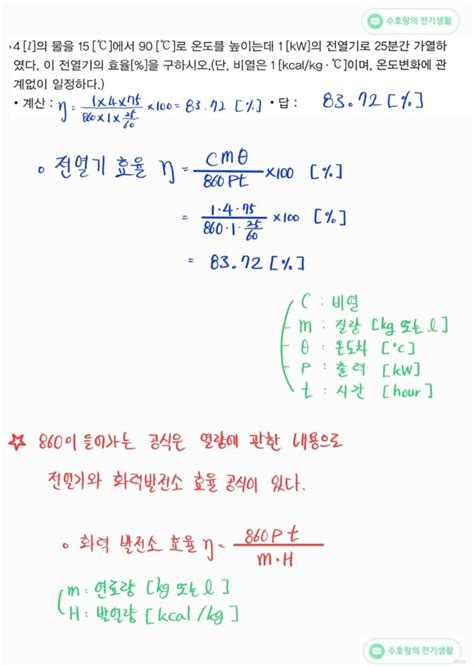 수호랑의 전기생활
4 [l]의 물을 15 [℃]에서 90 [℃]로 온도를 높이는데 1 [kW]의 전열기로 25분간 가열하
였다. 이 전열기의 효율[%]을 구하시오.(단, 비열은 1 [kcal/kg·℃]이며, 온도변화에 관
계없이 일정하다.)
• 계산 : η = 1×4×75 / 860×1×25/60 ×100 = 83.72 [%] • 답 : 83.72 [%]
o 전열기 효율 η = Cmθ / 860Pt ×100 [%]
= 1·4·75 / 860·1·25/60 ×100 [%]
= 83.72 [%]
C : 비열
m : 질량 [kg 또는 l]
θ : 온도차 [℃]
P : 출력 [kW]
t : 시간 [hour]
☆ 860이 들어가는 공식은 열량에 관한 내용으로
전열기와 화력발전소 효율 공식이 있다.
o 화력 발전소 효율 η = 860Pt / m·H
m : 연료량 [kg 또는 l]
H : 발열량 [kcal/kg]
수호랑의 전기생활